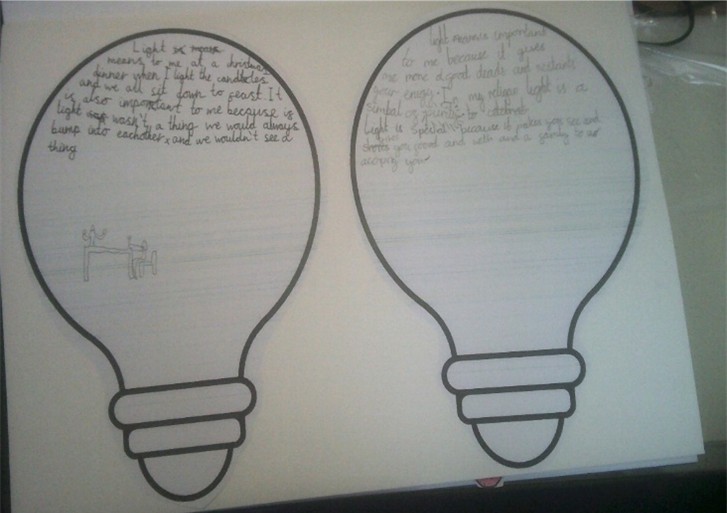 Light is means
means to me at a christmas
dinner when I light the candles
and we all sit down to feast. It
is also important to me because is
light wasn't a thing we would always
bump into eachother, and we wouldn't see a
thing
light important
to me because it gives
me more good deads and restarts
your energy. I my religon light is a
simbal of to celebrate
Light is special because it makes you see and
you proud and with and a
your